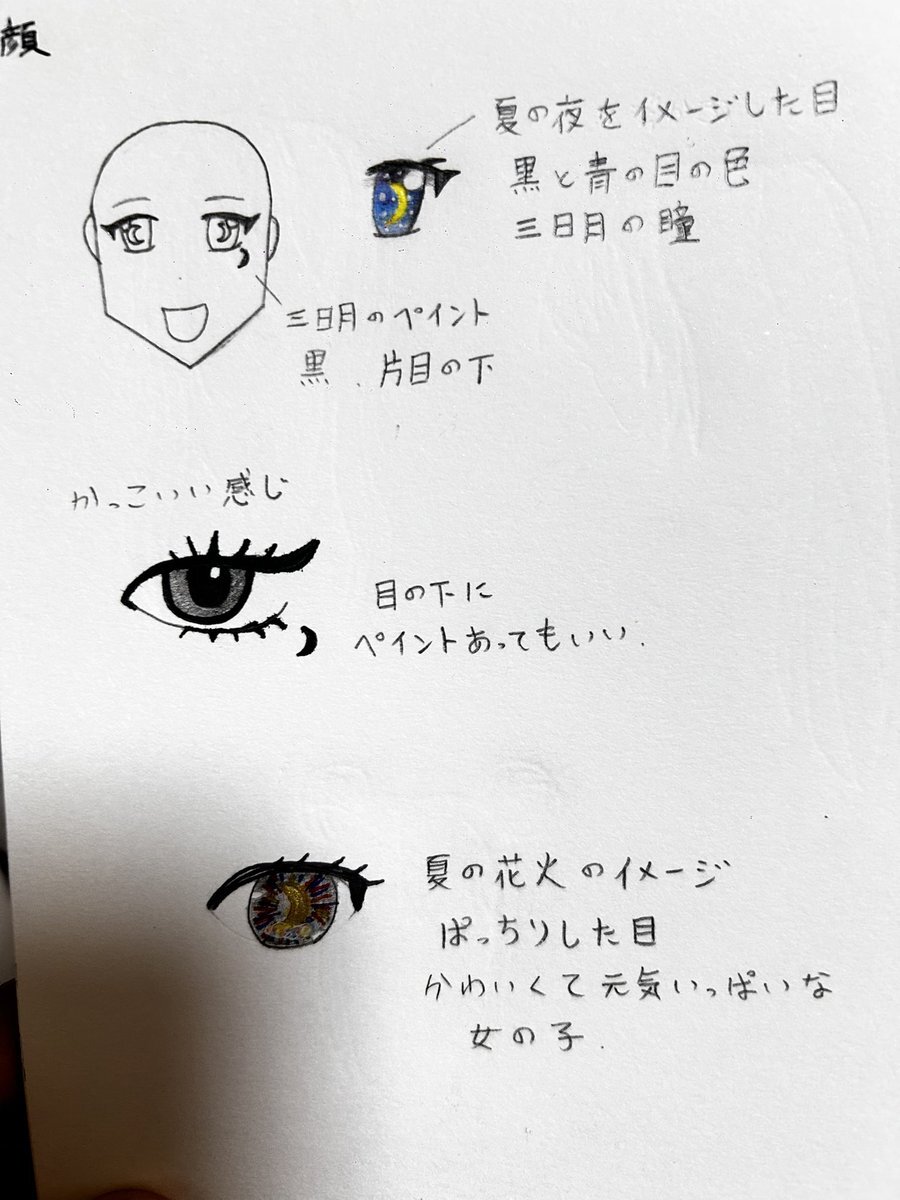 顔
夏の夜をイメージした目
黒と青の目の色
三日月の瞳
三日月のペイント
黒、片目の下
かっこいい感じ
目の下に
ペイントあってもいい.
夏の花火のイメージ
ぱっちりした目
かわいくて元気いっぱいな
女の子.